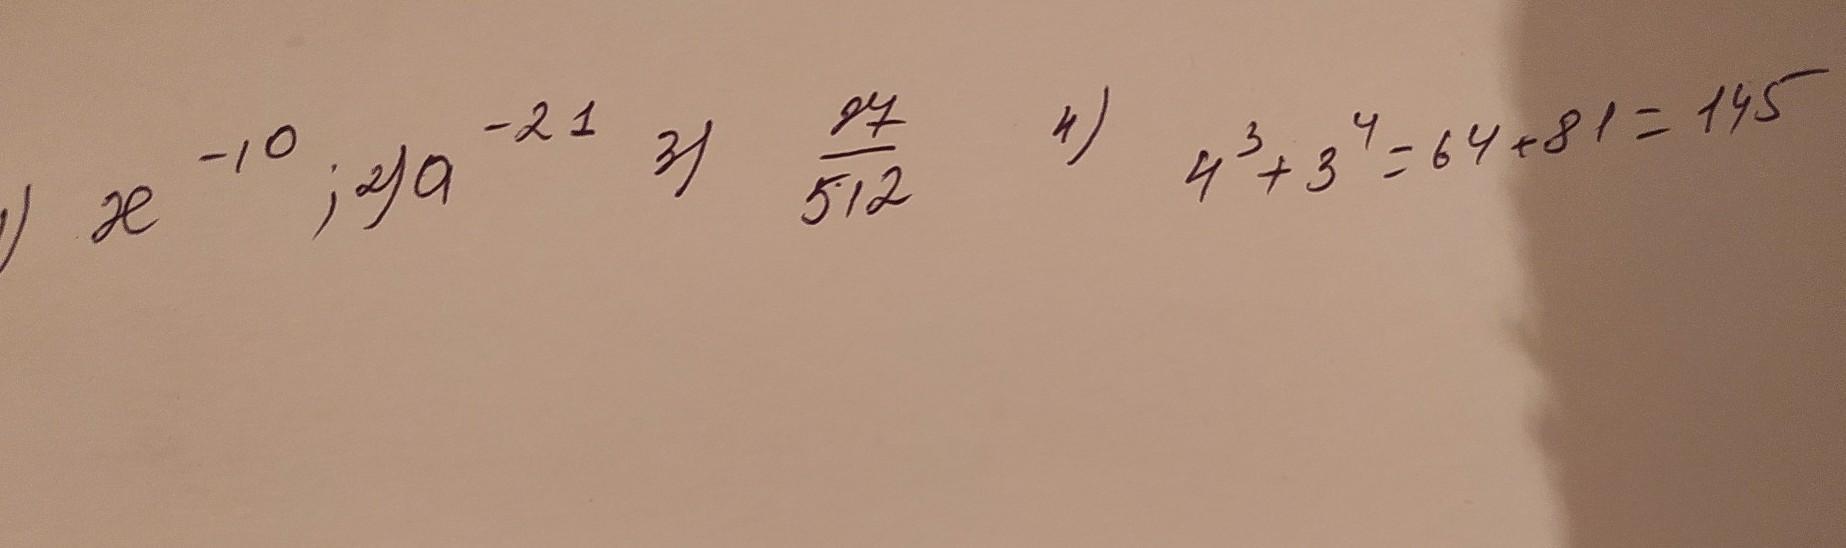 1) x⁻¹⁰; 2) a⁻²¹ 3) 27/512 4) 4³+3⁴=64+81=145